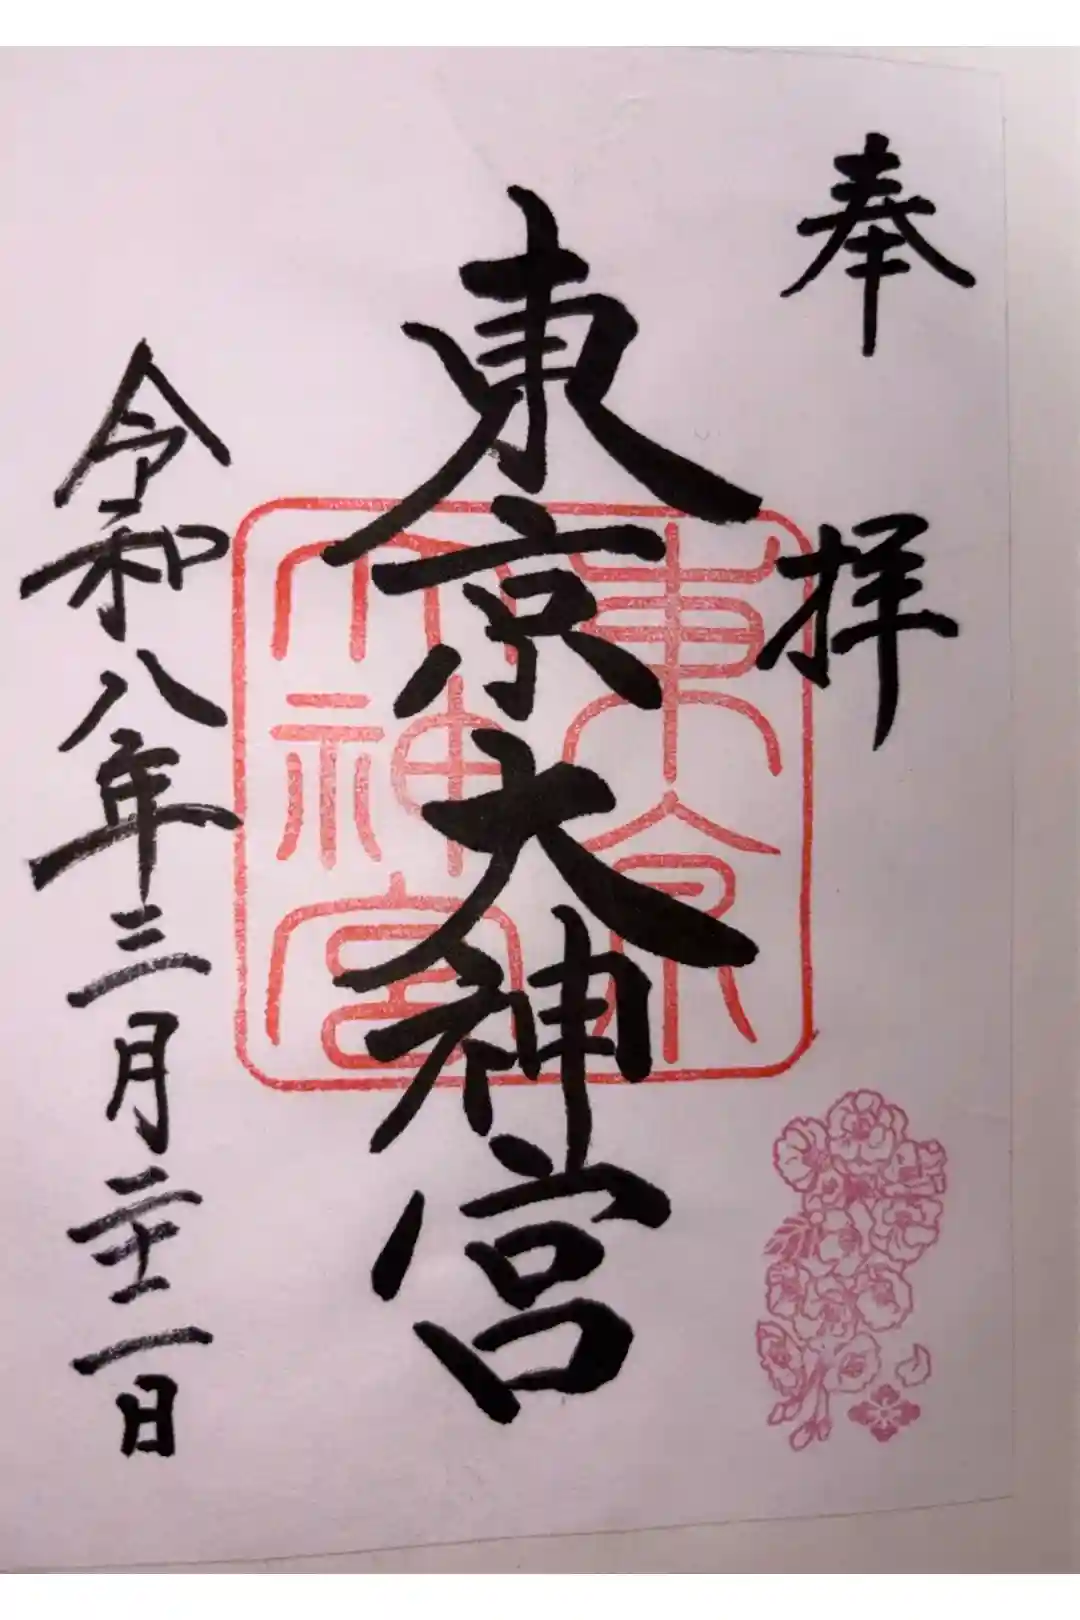 奉拝
東京大神宮
令和八年三月二十一日
東京
大神宮